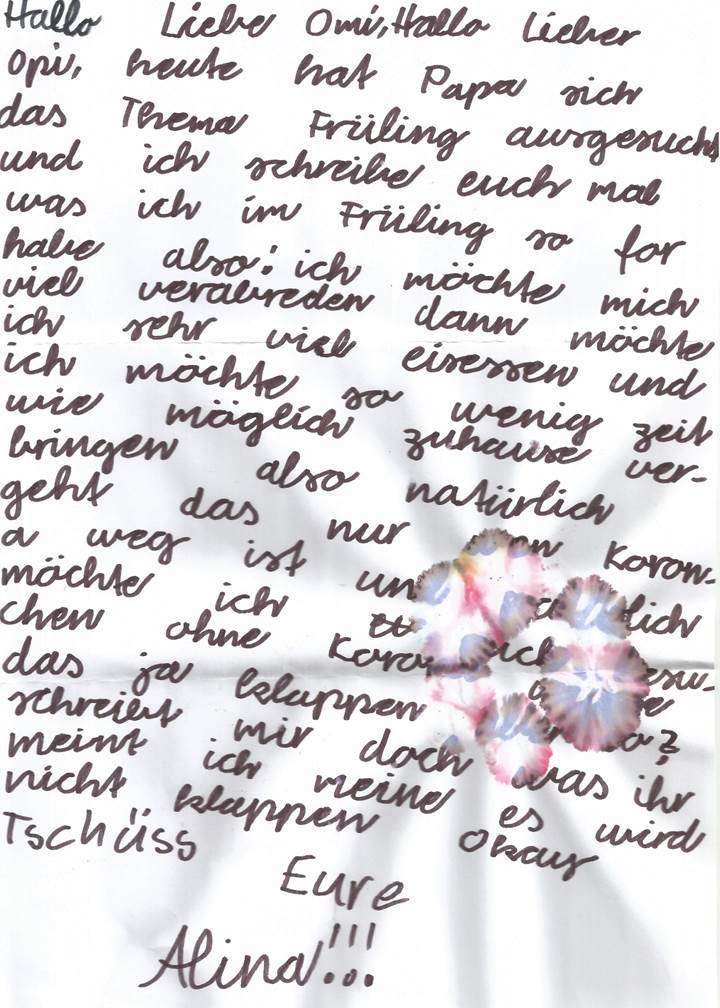 Hallo Liebe Omi, Hallo Lieber
Opi, heute hat Papa sich
das Thema Früling ausgesucht
und ich schreibe euch mal
was ich im Früling so for
habe also: ich möchte mich
viel verabreden dann möchte
ich sehr viel eisessen und
ich möchte so wenig zeit
wie möglich zuhause ver-
bringen also natürlich
geht das nur Koron-
a weg ist
möchte ich lich
chen ohne
das ja klappen
schreibt mir doch was ihr
meint ich meine es wird
nicht klappen Okay
Tschüss
Eure
Alina!!!